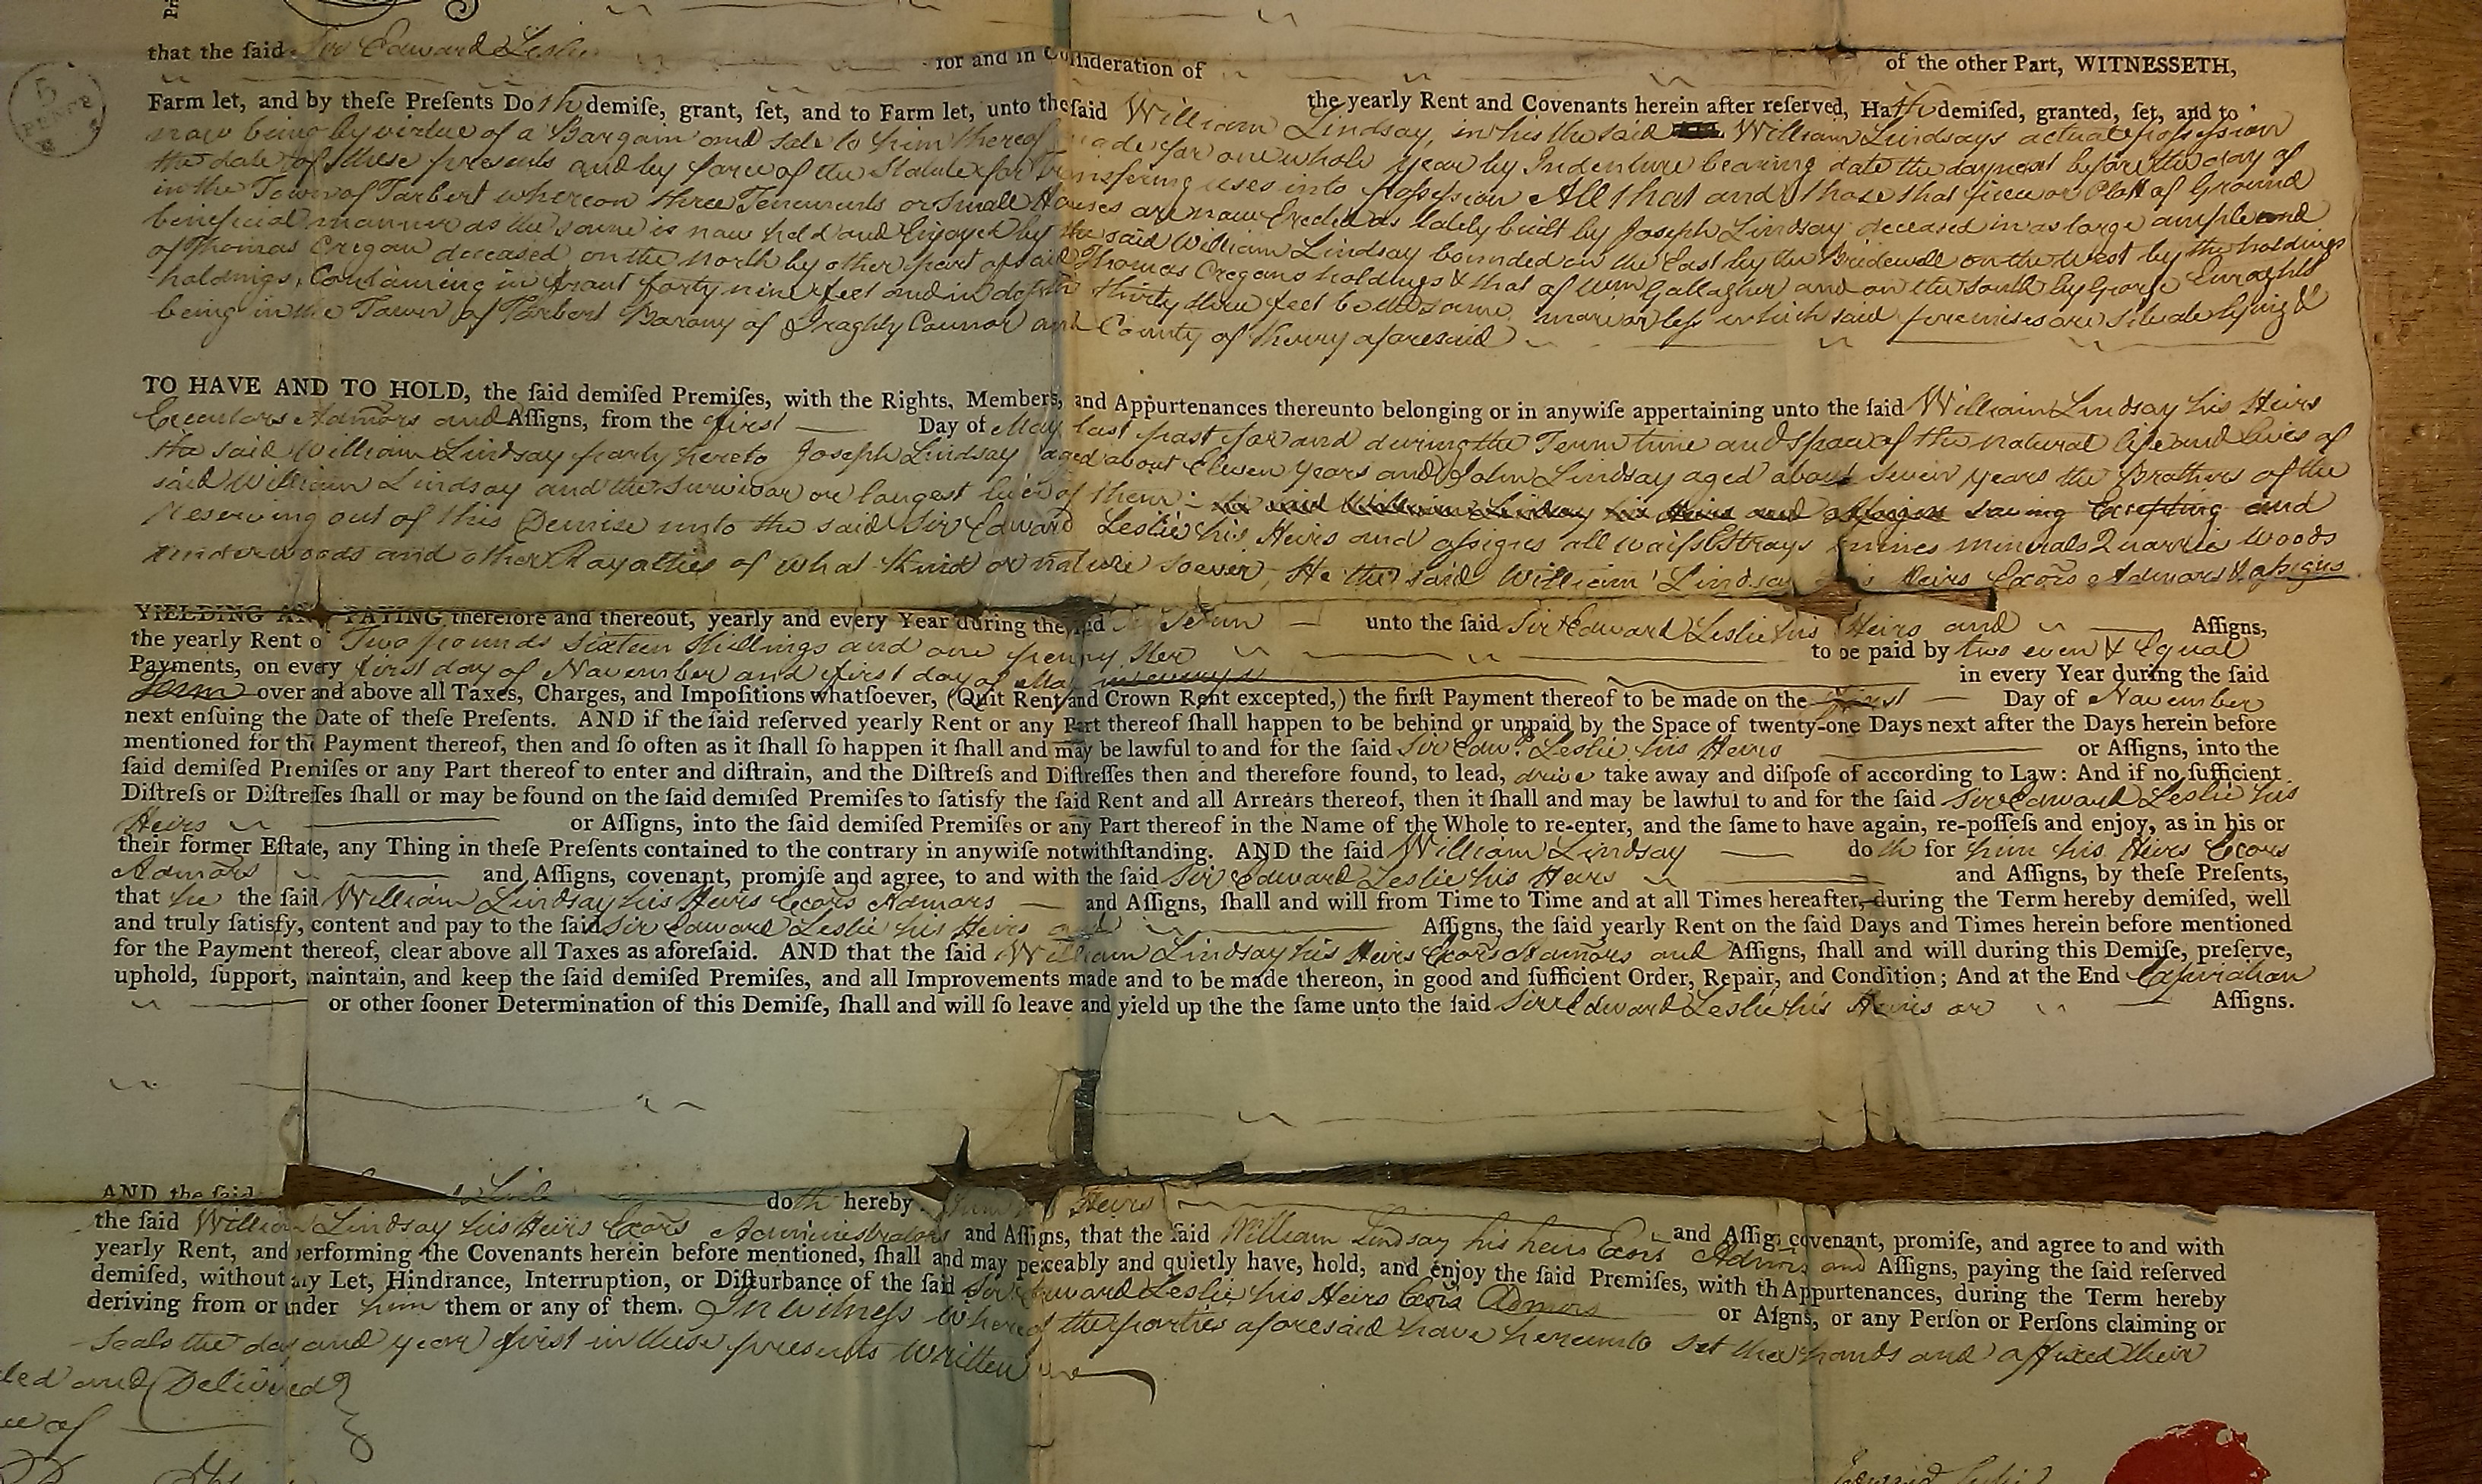 that the said Sir Edward Leslie for and in Consideration of of the other Part, WITNESSETH,
the yearly Rent and Covenants herein after reſerved, Hath demiſed, granted, ſet, and to
Farm let, and by theſe Preſents Doth demiſe, grant, ſet, and to Farm let, unto the ſaid William Lindsay, in his the said William Lindsays actual poſseſsion
now being by virtue of a Bargain and sale to him thereof made for one whole year by Indenture bearing date the day next before the day of
the date of these presents and by force of the Statute for transfering uses into poſseſsion All that and those that piece or Plott of Ground
in the Town of Tarbert whereon three Tenements or Small Houses are now Erected as lately built by Joseph Lindsay deceased in as large ample and
beneficial manner as the same is now held and Enjoyed by the said William Lindsay bounded on the East by the Bridewell on the West by the holdings
of Thomas Cregan deceased on the North by other part of said Thomas Cregans holdings & that of Wm Gallagher and on the South by George Enraghts
holdings, Containing in front forty nine feet and in depth thirty three feet be the same more or leſs which said premises are situate lying &
being in the Town of Tarbert Barony of Iraghty Connor and County of Kerry aforesaid
TO HAVE AND TO HOLD, the ſaid demiſed Premiſes, with the Rights, Members, and Appurtenances thereunto belonging or in anywiſe appertaining unto the ſaid William Lindsay his Heirs
Executors Admors and Aſſigns, from the first Day of May last past for and during the Term time and space of the natural life and lives of
the said William Lindsay party hereto Joseph Lindsay aged about Eleven years and John Lindsay aged about seven years the Brothers of the
said William Lindsay and the survivor or longest liver of them - the said William Lindsay his Heirs and Aſsigns saving Excepting and
Reserving out of this Demise unto the said Sir Edward Leslie his Heirs and aſsigns all waifs Estrays mines minerals Quarries Woods
underwoods and other Royalties of what Kind or nature soever, He the said William Lindsay his Heirs Exors Admors & aſsigns
YIELDING AND PAYING therefore and thereout, yearly and every Year during the ſaid Term unto the ſaid Sir Edward Leslie his Heirs and Aſſigns,
the yearly Rent of Two pounds Sixteen Shillings and one penny Ster to be paid by two even & Equal
Payments, on every first day of November and first day of May in every Year during the ſaid
Term over and above all Taxes, Charges, and Impoſitions whatſoever, (Quit Rent and Crown Rent excepted,) the firſt Payment thereof to be made on the first Day of November
next enſuing the Date of theſe Preſents. AND if the ſaid reſerved yearly Rent or any Part thereof ſhall happen to be behind or unpaid by the Space of twenty-one Days next after the Days herein before
mentioned for the Payment thereof, then and ſo often as it ſhall ſo happen it ſhall and may be lawful to and for the ſaid Sir Edwd. Leslie his Heirs or Aſſigns, into the
ſaid demiſed Premiſes or any Part thereof to enter and diſtrain, and the Diſtreſs and Diſtreſſes then and therefore found, to lead, drive take away and diſpoſe of according to Law: And if no ſufficient
Diſtreſs or Diſtreſſes ſhall or may be found on the ſaid demiſed Premiſes to ſatisfy the ſaid Rent and all Arrears thereof, then it ſhall and may be lawful to and for the ſaid Sir Edward Leslie his
Heirs or Aſſigns, into the ſaid demiſed Premiſes or any Part thereof in the Name of the Whole to re-enter, and the ſame to have again, re-poſſeſs and enjoy, as in his or
their former Eſtate, any Thing in theſe Preſents contained to the contrary in anywiſe notwithſtanding. AND the ſaid William Lindsay doth for him his Heirs Exors
Admors and Aſſigns, covenant, promiſe and agree, to and with the ſaid Sir Edward Leslie his Heirs and Aſſigns, by theſe Preſents,
that he the ſaid William Lindsay his Heirs Exors Admors and Aſſigns, ſhall and will from Time to Time and at all Times hereafter, during the Term hereby demiſed, well
and truly ſatisfy, content and pay to the ſaid Sir Edward Leslie his Heirs and Aſſigns, the ſaid yearly Rent on the ſaid Days and Times herein before mentioned
for the Payment thereof, clear above all Taxes as aforeſaid. AND that the ſaid William Lindsay his Heirs Exors Admors and Aſſigns, ſhall and will during this Demiſe, preſerve,
uphold, ſupport, maintain, and keep the ſaid demiſed Premiſes, and all Improvements made and to be made thereon, in good and ſufficient Order, Repair, and Condition; And at the End Expiration
or other ſooner Determination of this Demiſe, ſhall and will ſo leave and yield up the the ſame unto the ſaid Sir Edward Leslie his Heirs or Aſſigns.
AND the ſaid Leslie doth hereby Heirs and Aſſigns covenant, promiſe, and agree to and with
the ſaid William Lindsay his Heirs Exors Administrators and Aſſigns, that the ſaid William Lindsay his heirs Exors Admors and Aſſigns, paying the ſaid reſerved
yearly Rent, and performing the Covenants herein before mentioned, ſhall and may peaceably and quietly have, hold, and enjoy the ſaid Premiſes, with th Appurtenances, during the Term hereby
demiſed, without any Let, Hindrance, Interruption, or Diſturbance of the ſaid Sir Edward Leslie his Heirs Exors Admors or Aſigns, or any Perſon or Perſons claiming or
deriving from or under him them or any of them. In witneſs whereof the parties aforesaid have hereunto set their hands and affixed their
Seals the day and year first in these presents written
led and Delivered
ce of
5 PENCE
Edward Leslie